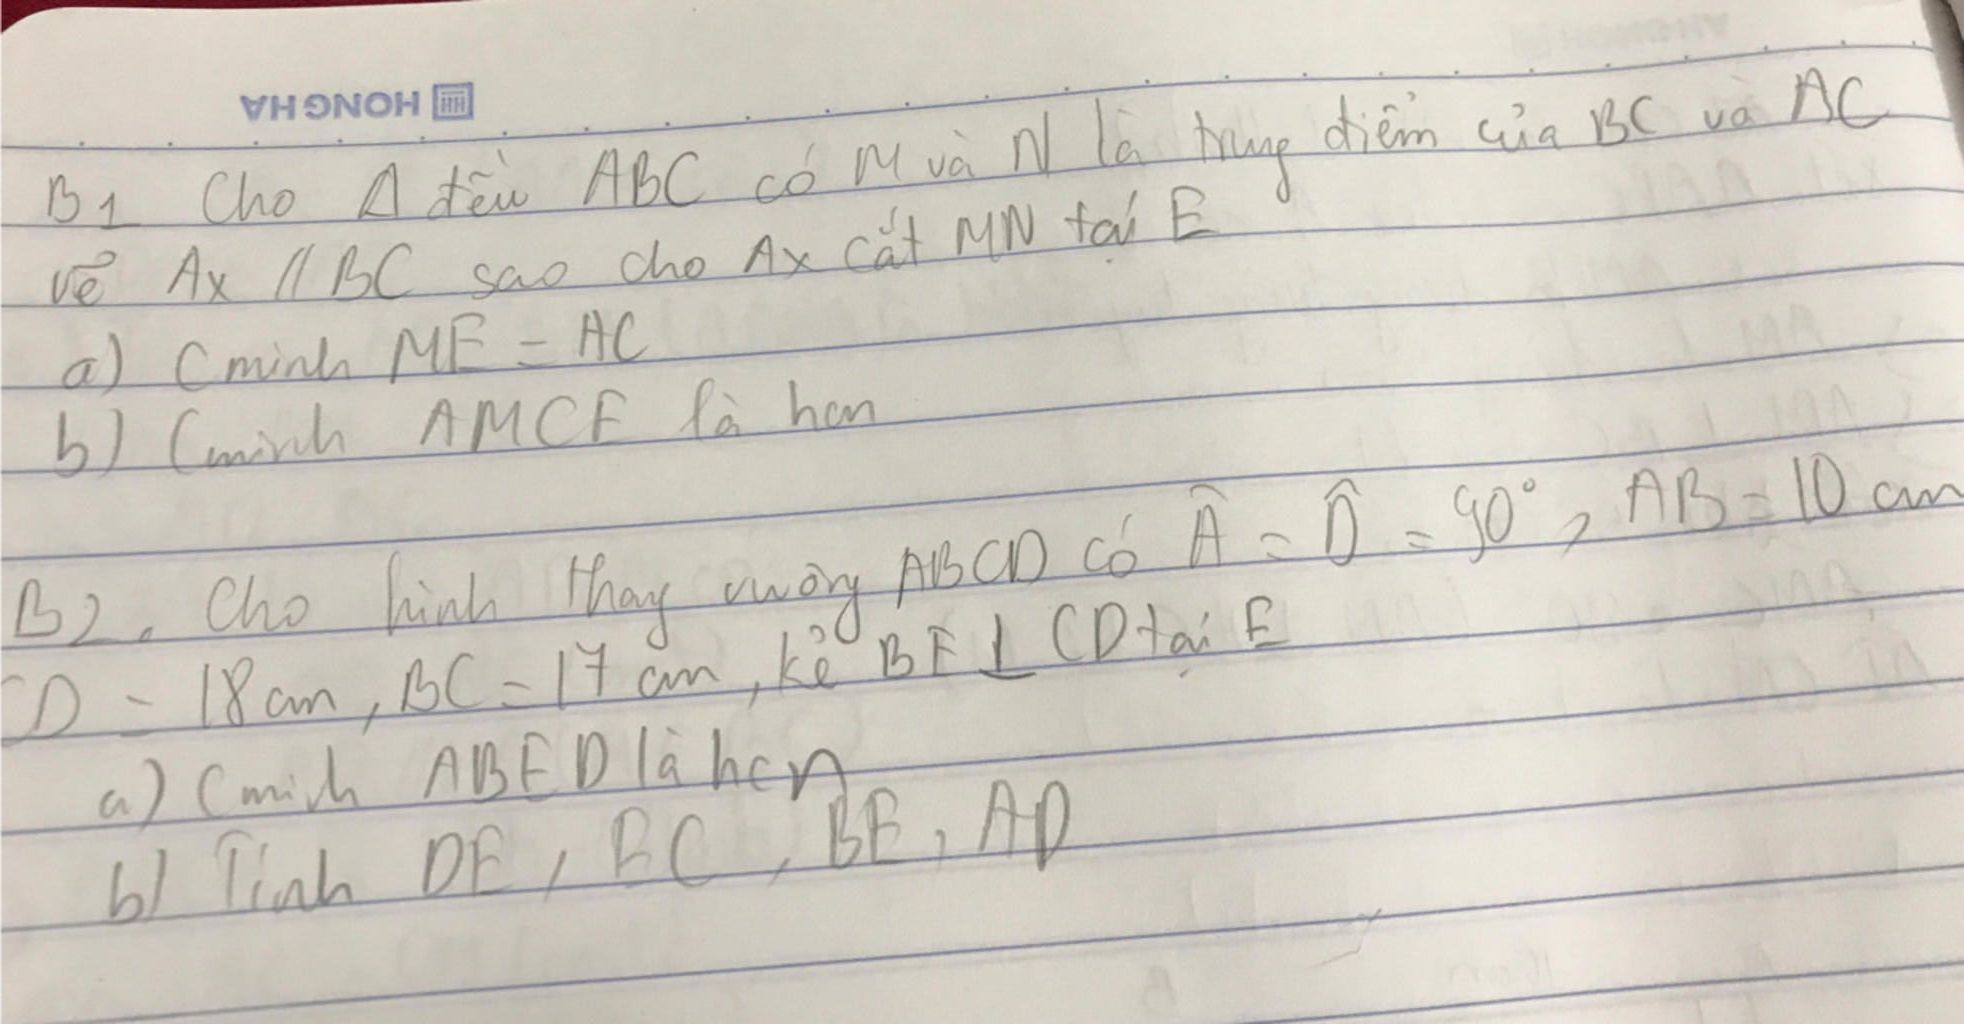 HONG HA
B1 Cho Δ đều ABC có M và N là trung điểm của BC và AC
vẽ Ax // BC sao cho Ax cắt MN tại E
a) Cminh ME = AC
b) Cminh AMCE là hcn
B2. Cho hình thang vuông ABCD có Â = D̂ = 90°, AB = 10 cm
CD = 18 cm, BC = 17 cm, kẻ BE ⊥ CD tại E
a) Cminh ABED là hcn
b) Tính DE, EC, BE, AD